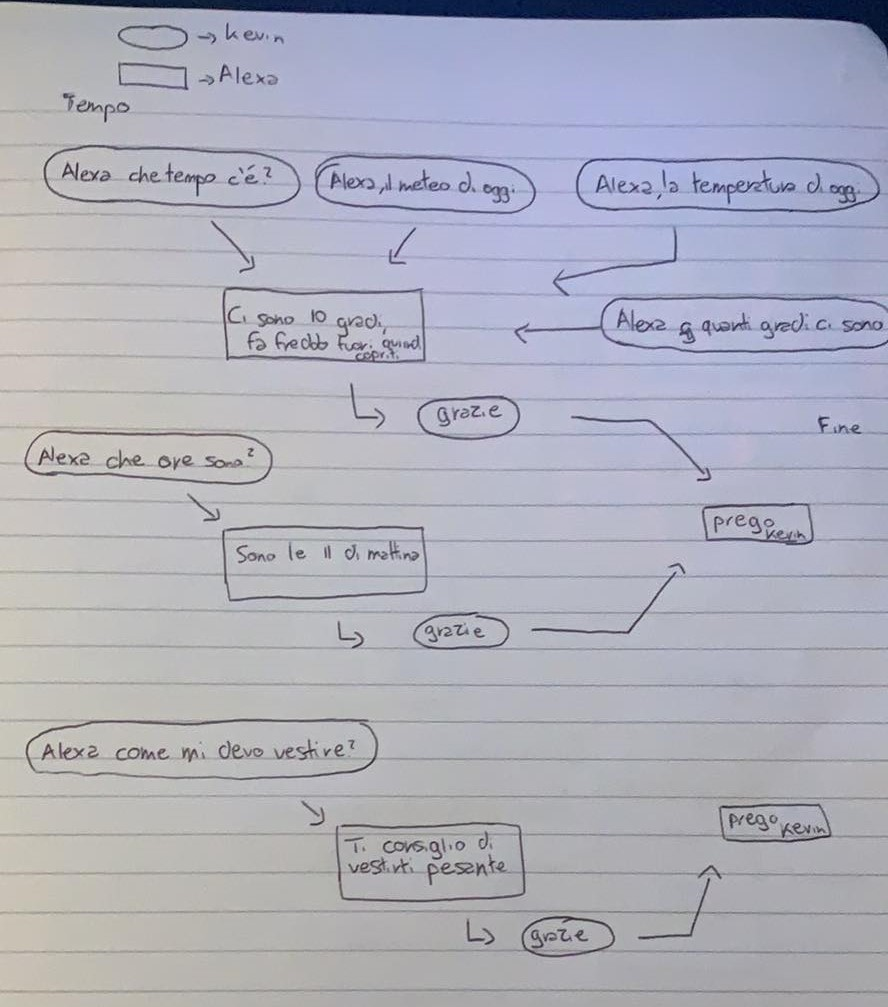 → Kevin
→ Alexa
Tempo
Alexa che tempo c'é?
Alexa, il meteo di oggi
Alexa, la temperatura di oggi
Ci sono 10 gradi,
fa freddo fuori quindi
copriti
Alexa quanti gradi ci sono
grazie
Fine
Alexa che ore sono?
prego
Kevin
Sono le 11 di mattina
grazie
Alexa come mi devo vestire?
prego Kevin
Ti consiglio di
vestirti pesante
grazie